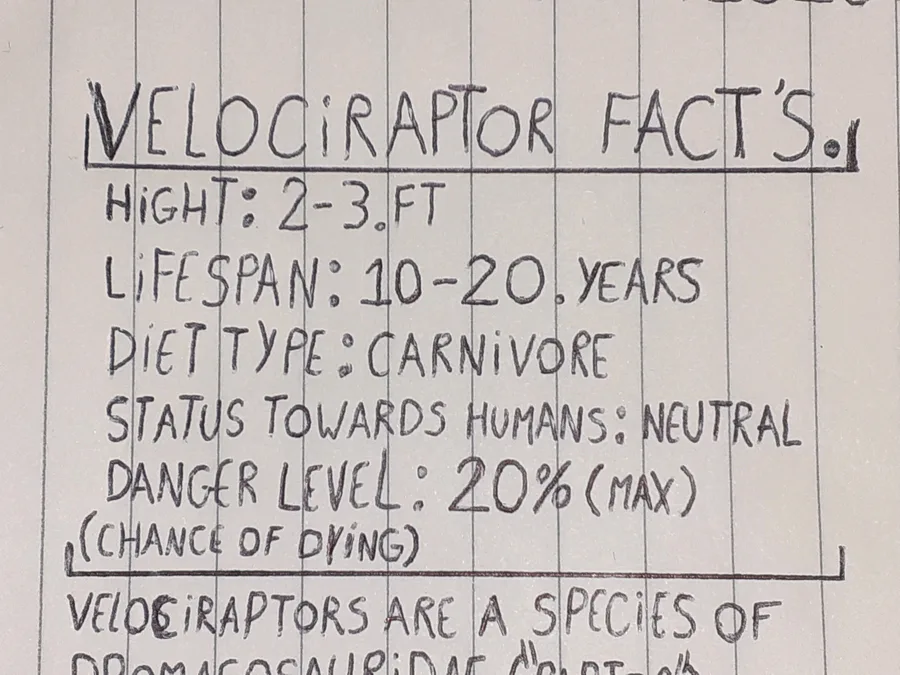 VELOCiRAPTOR FACT'S.
HiGHT: 2-3.FT
LiFESPAN: 10-20.YEARS
DiET TYPE: CARNiVORE
STATUS TOWARDS HUMANS: NEUTRAL
DANGER LEVEL: 20% (MAX)
(CHANCE OF DYiNG)
VELOCiRAPTORS ARE A SPECiES OF